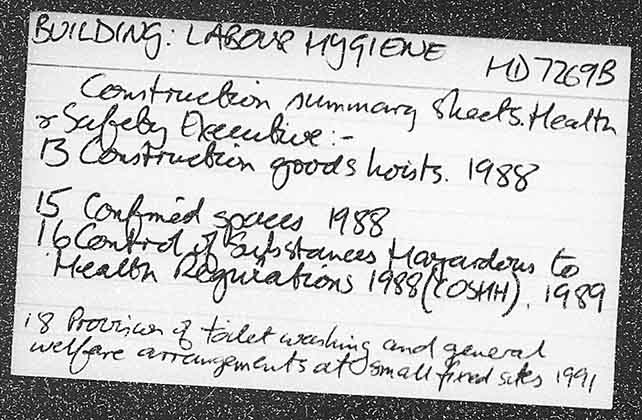 BUILDING: LABOUR HYGIENE MD7269B
Construction summary sheets. Health
& Safety Executive:-
13 Construction goods hoists. 1988
15 Confined spaces 1988
16 Control of Substances Hazardous to
Health Regulations 1988 (COSHH). 1989
18 Provision of toilet washing and general
welfare arrangements at small fixed sites 1991